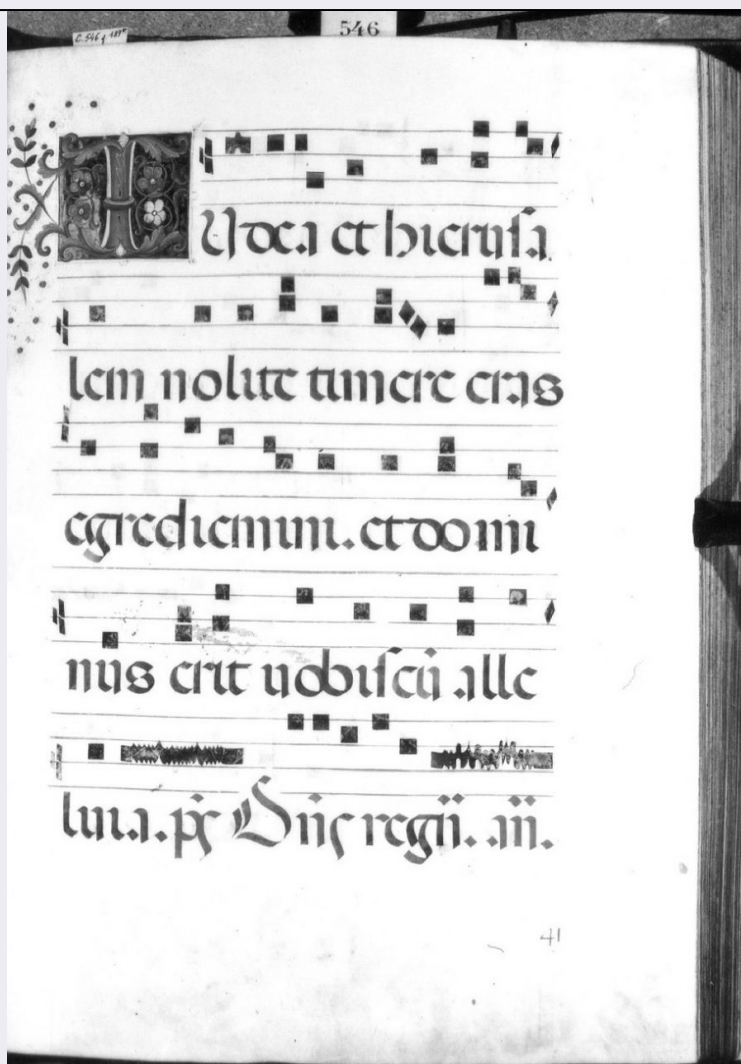 546
IUdea et hierusa
lem nolite timere cras
egrediemini. et domi
nus erit uobiscū alle
luia. p̄s Dn̄s regn̄.
41